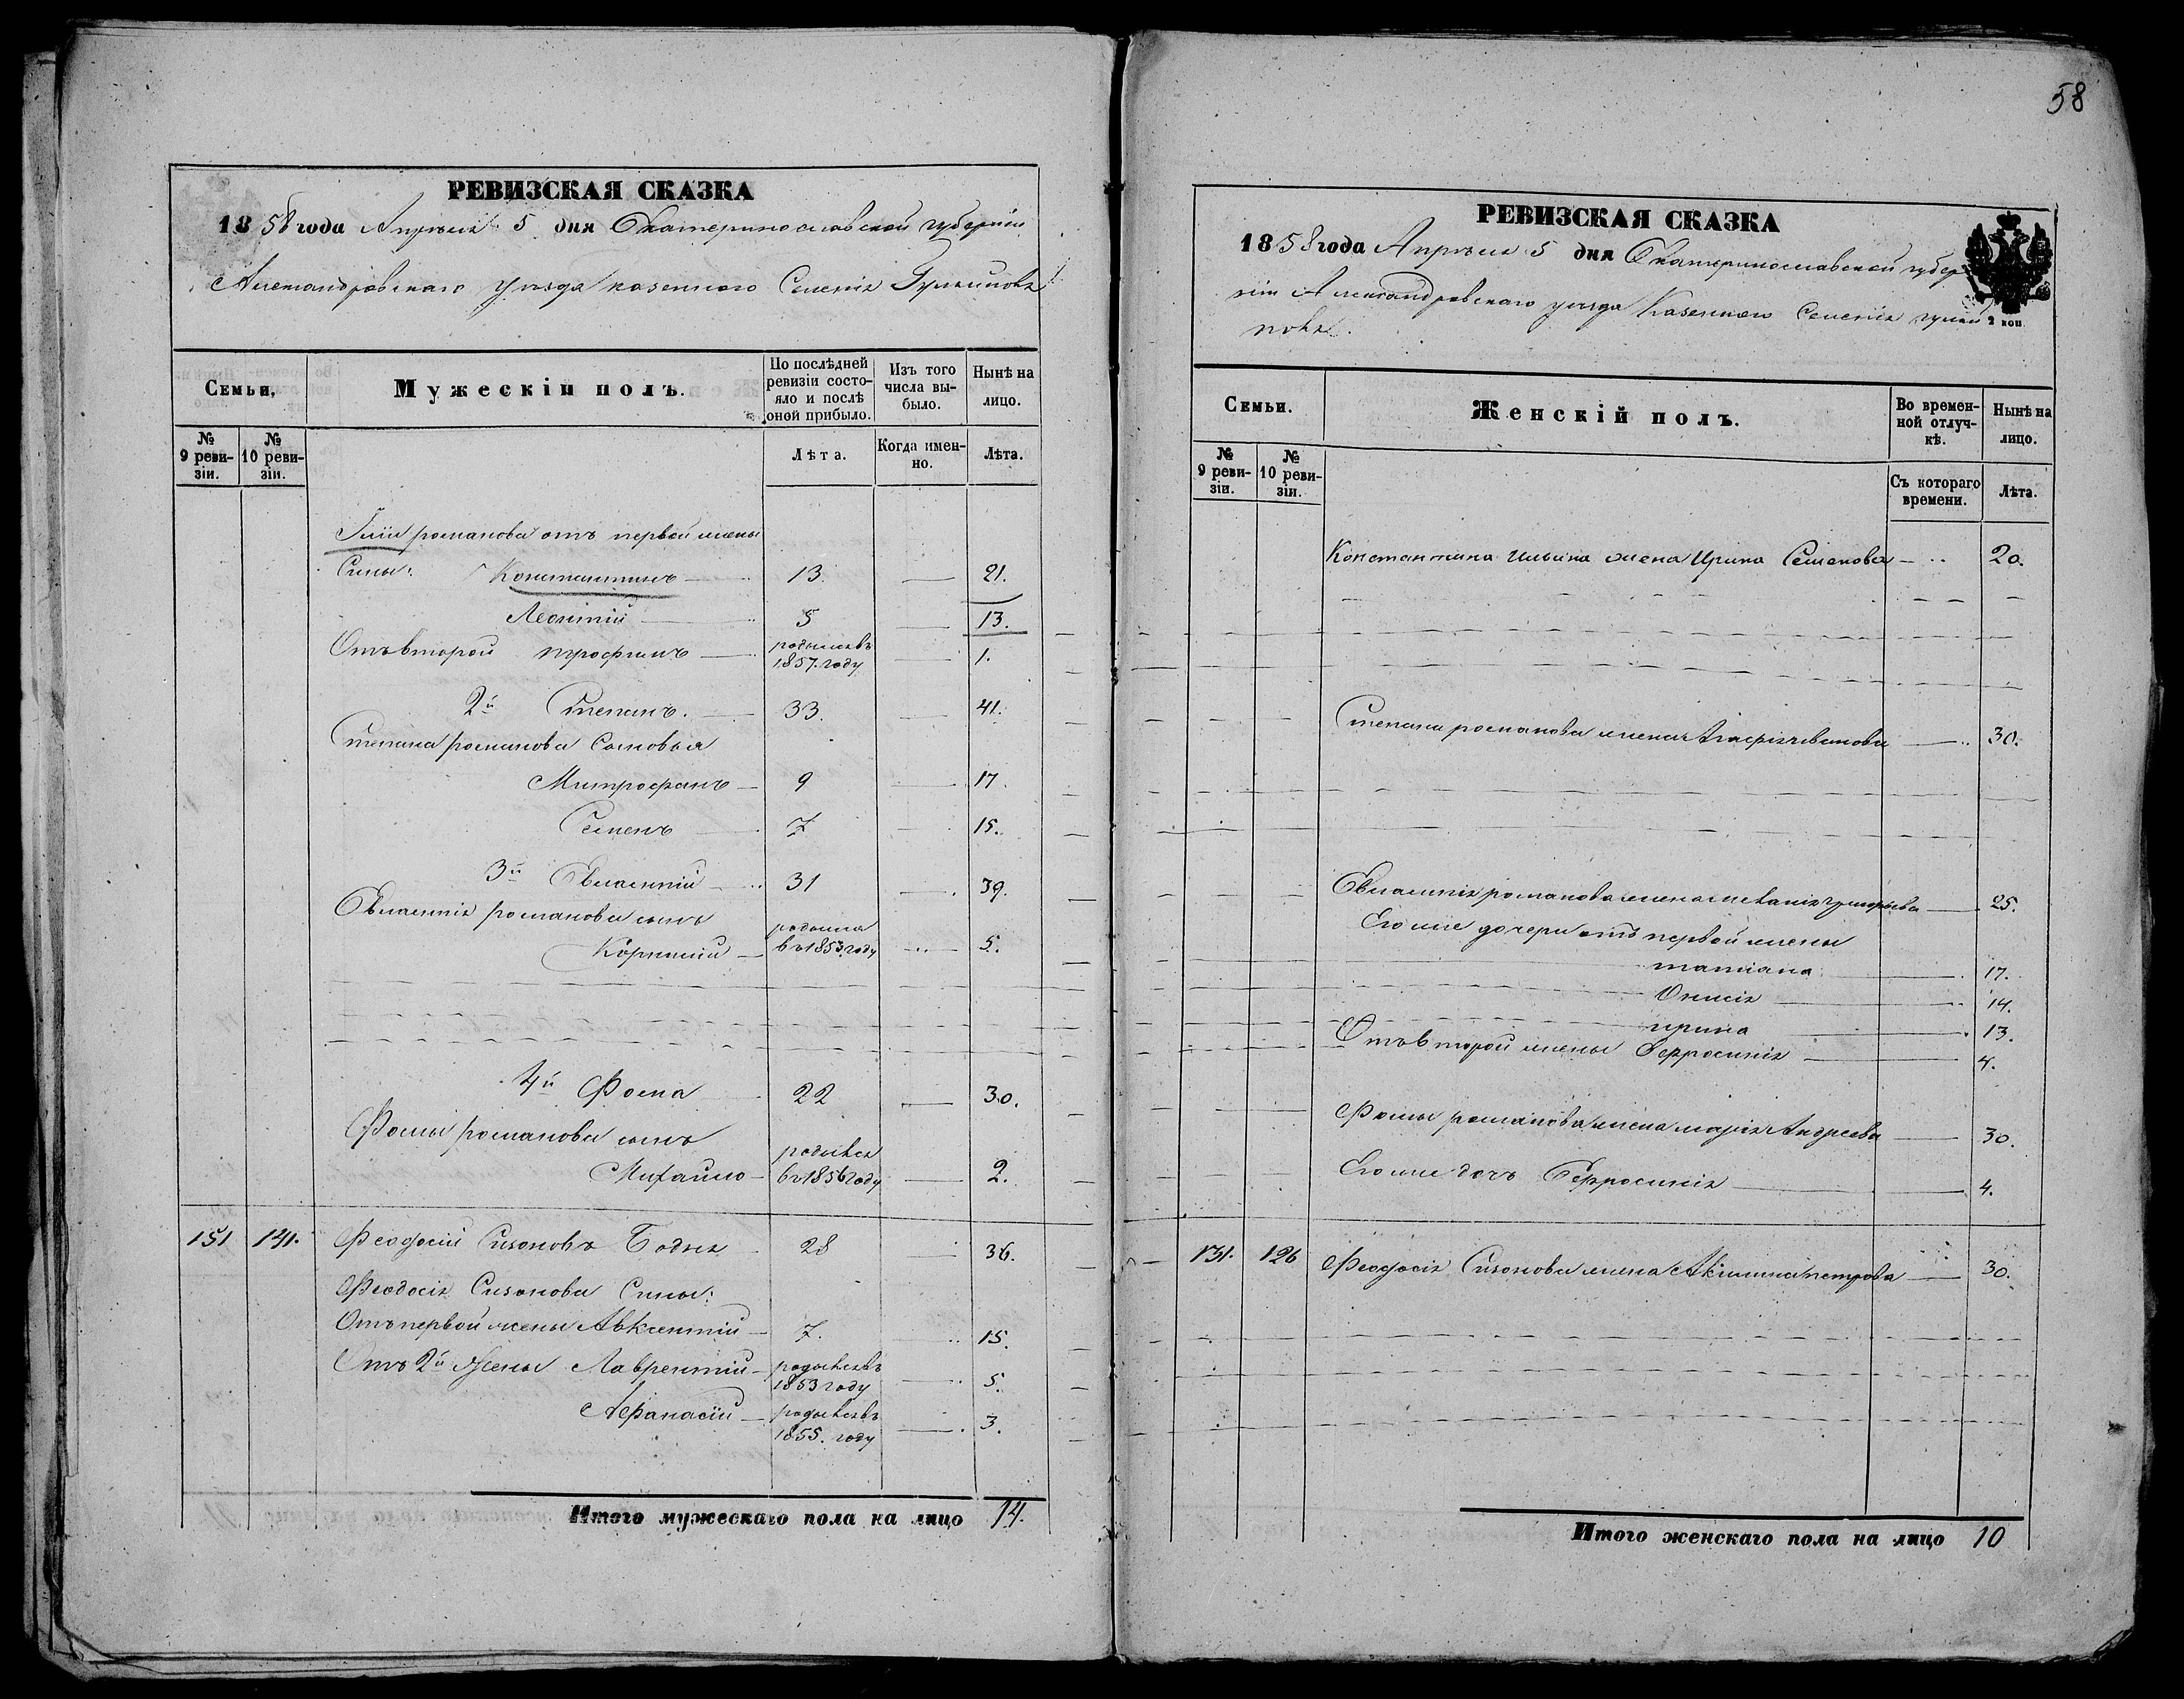 РЕВИЗСКАЯ СКАЗКА
1858 года Апреля 5 дня Екатеринославской губернии
Александровскаго уезда казеннаго Селенія Гуляйполя
Семьи. Мужескій полъ. По послѣдней ревизіи состояло и послѣ оной прибыло. Изъ того числа выбыло. Нынѣ на лицо.
№ 9 ревизіи. № 10 ревизіи. Лѣта. Когда именно. Лѣта.
романова отъ первой жены
Сины: Константинъ 13. 21.
Леонтій 5 13.
Отъ второй трофимъ 1857. году 1.
2й Степанъ. 33. 41.
Степана романова Сыновья
Митрофанъ 9 17.
Семенъ 7 15.
3й Евлампій 31 39.
Евлампія романова сынъ
Корнилій въ 1853 году 5.
4й Фома 22 30.
Фомы романова сынъ
Михайло родився въ 1856 году 2.
151 141. Феодосій Сизоновъ Бодня 28 36.
Феодосія Сизонова Сины:
Отъ первой жены Авксентій 7. 15.
Отъ 2й Жены Лаврентій родився въ 1853 году 5.
Афанасій родився въ 1855. году 3.
Итого мужескаго пола на лицо 14.
58
РЕВИЗСКАЯ СКАЗКА
1858 года Апреля 5 дня Екатеринославской губер
ніи Александровскаго уезда Казеннаго Селенія гуляй
поля.
2 коп.
Семьи. Женскій полъ. Во временной отлучкѣ. Нынѣ на лицо.
№ 9 ревизіи. № 10 ревизіи. Съ котораго времени. Лѣта.
Константина Ильина жена Ирина Семенова 20.
Степана романова жена Агафія иванова 30.
Евлампія романова жена меланія григорьева 25.
Его же дочери отъ первой жены
татіана 17.
14.
ирина 13.
Отъ второй женыЕфросинія 4.
Фомы романова жена марія Андреева 30.
Его же дочь Ефросинія 4.
151. 126 Феодосія Сизонова жена Акилина петрова 30.
Итого женскаго пола на лицо 10